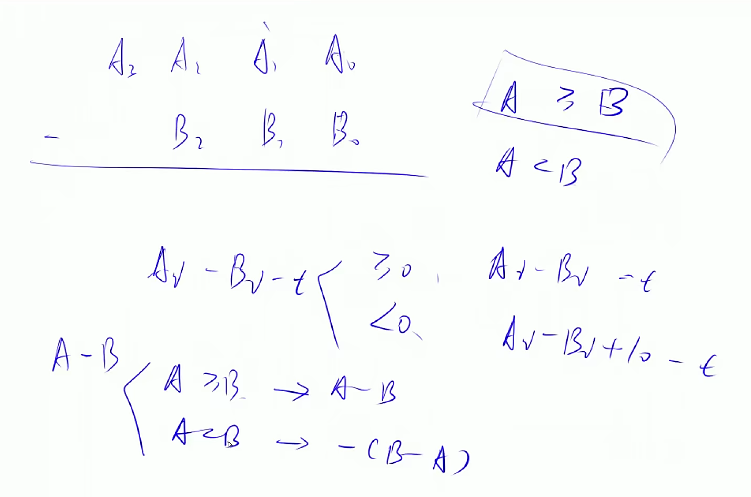 A₃ A₂ A₁ A₀
- B₂ B₁ B₀
A ≥ B
A < B
Aᵢ - Bᵢ - t ≥0. Aᵢ - Bᵢ - t
<0. Aᵢ - Bᵢ + 10 - t
A - B
A ≥ B → A - B
A < B → -(B - A)